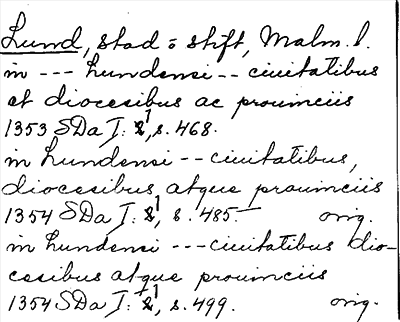 Lund, stad o stift, Malm. l.
in --- lundensi -- ciuitatibus
et diocesibus ac prouinciis
1353 SDa I: 1, s. 468.
in lundensi -- ciuitatibus,
diocesibus atque prouinciis
1354 SDa I: 1, s. 485. orig.
in lundensi --- ciuitatibus dio-
cesibus atque prouinciis
1354 SDa I: 1, s. 499. orig.